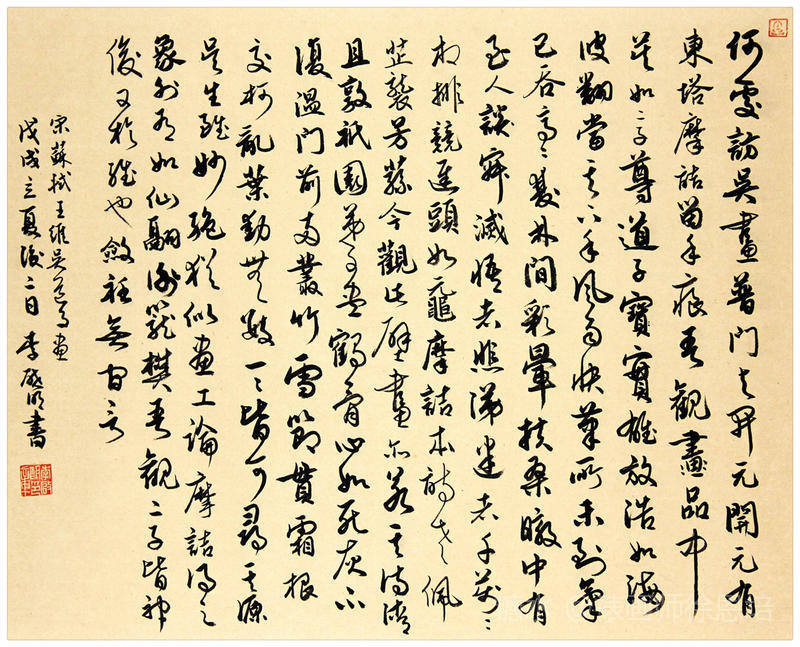 何處訪吳畫普門与开元開元有
東塔摩詰留手痕吾觀畫品中
莫如二子尊道子寶實雄放浩如海
波翻當其下手風雨快筆所未到氣
已吞亭亭雙林間彩暈扶桑暾中有
至人談寂滅悟者悲涕迷者千萬萬
相排競進頭如黿摩詰本詩老佩
芷襲芳蓀今觀此壁畫亦若其詩清
且敦祇園弟子盡鶴骨心如死灰不
復溫門前兩叢竹雪節貫霜根
交柯亂葉動無數一一皆可尋其源
吳生雖妙絕猶似畫工論摩詰得之
象外有如仙翮謝籠樊吾觀二子皆神
俊又於維也斂衽無間言
宋蘇軾王維吳道子畫
戊戌立夏後二日李啟明書